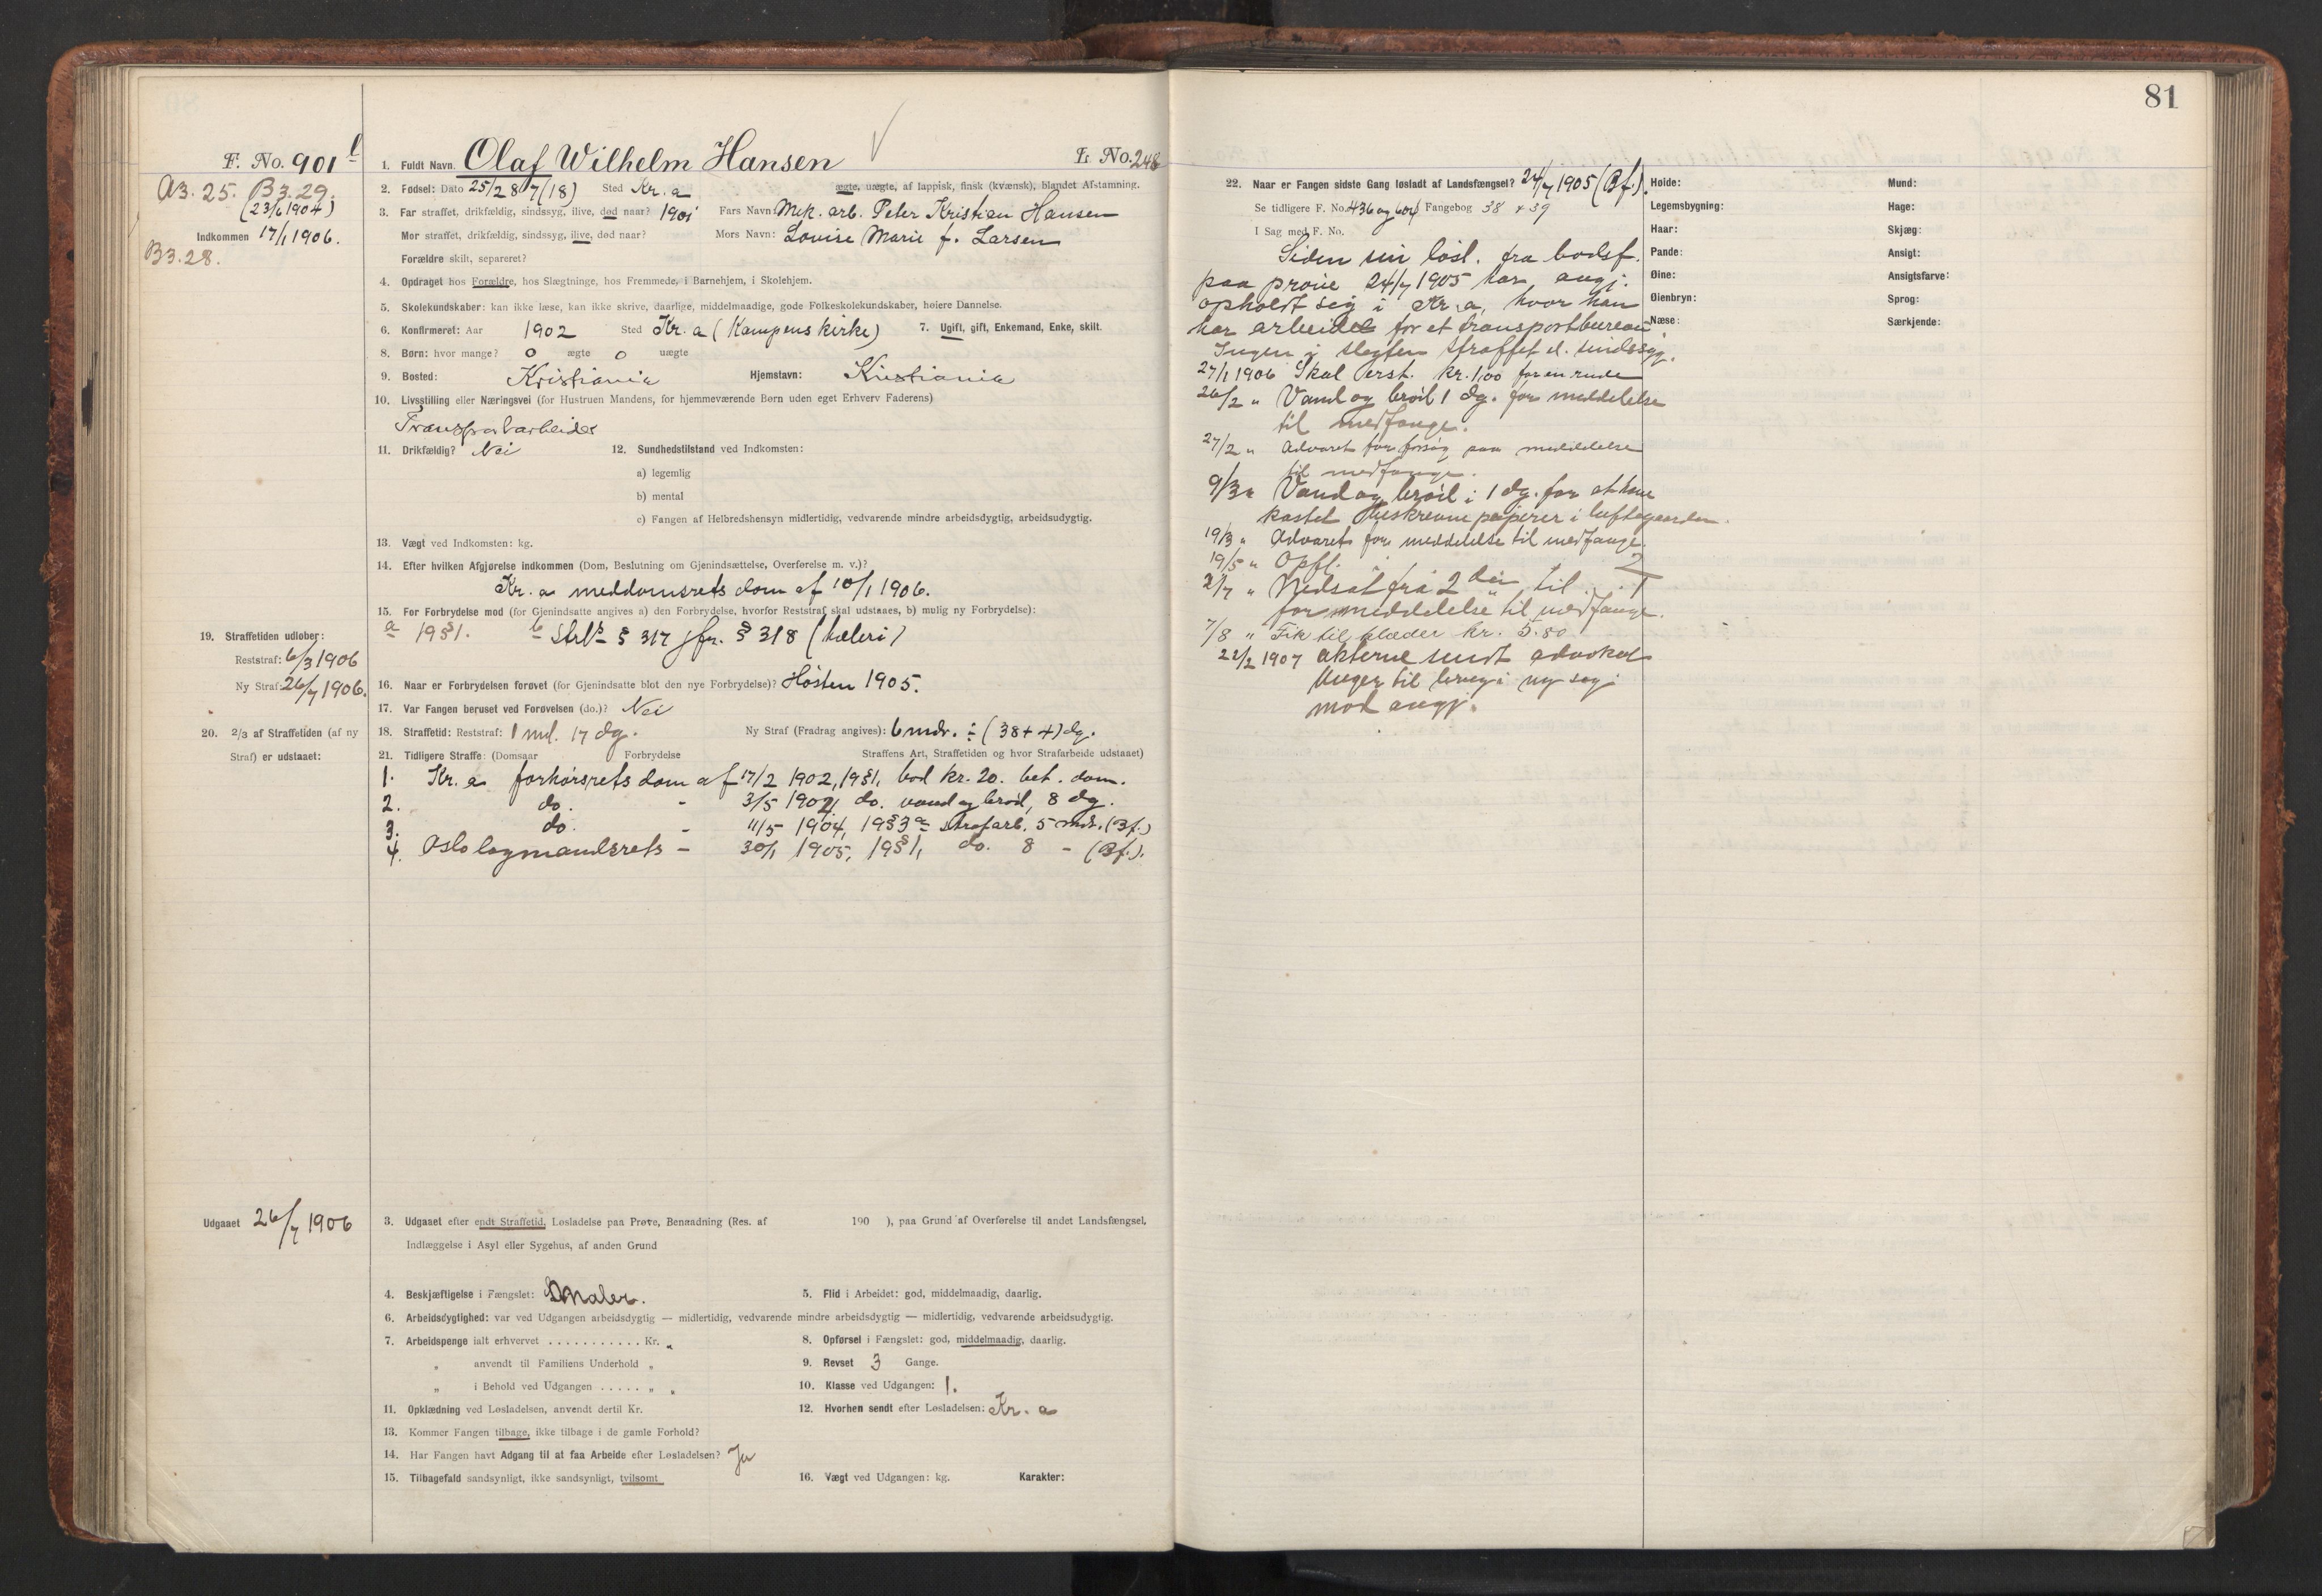 81
F. No. 901 b
1. Fuldt Navn. Olaf Wilhelm Hansen
L No. 248
A3. 25. B3. 29.
(23/6 1904)
Indkommen 17/1 1906.
B3. 28.
2. Fødsel: Dato 25/2 87 (18) Sted Kr. a ægte, uægte, af lappisk, finsk (kvænsk), blandet Afstamning.
3. Far straffet, drikfældig, sindssyg, ilive, død naar? 1901 Fars Navn: Mek. arb. Peter Kristian Hansen
Mor straffet, drikfældig, sindssyg, ilive, død naar? Mors Navn: Lovise Marie f. Larsen
Forældre skilt, separeret?
4. Opdraget hos Forældre, hos Slægtninge, hos Fremmede, i Barnehjem, i Skolehjem.
5. Skolekundskaber: kan ikke læse, kan ikke skrive, daarlige, middelmaadige, gode Folkeskolekundskaber, høiere Dannelse.
6. Konfirmeret: Aar 1902 Sted Kr. a (Kampens kirke) 7. Ugift, gift, Enkemand, Enke, skilt.
8. Børn: hvor mange? 0 ægte 0 uægte
9. Bosted: Kristiania Hjemstavn: Kristiania
10. Livsstilling eller Næringsvei (for Hustruen Mandens, for hjemmeværende Børn uden eget Erhverv Faderens)
Transportarbeider
11. Drikfældig? Nei 12. Sundhedstilstand ved Indkomsten:
a) legemlig
b) mental
c) Fangen af Helbredshensyn midlertidig, vedvarende mindre arbeidsdygtig, arbeidsudygtig.
13. Vægt ved Indkomsten: kg.
14. Efter hvilken Afgjørelse indkommen (Dom, Beslutning om Gjenindsættelse, Overførelse m. v.)?
Kr. a meddomsrets dom af 10/1 1906.
15. For Forbrydelse mod (for Gjenindsatte angives a) den Forbrydelse, hvorfor Reststraf skal udstaaes, b) mulig ny Forbrydelse):
a 19 § 1. b Strl § 317 jfr. § 318 (hæleri)
19. Straffetiden udløber:
Reststraf: 6/3 1906
Ny Straf: 26/7 1906.
16. Naar er Forbrydelsen forøvet (for Gjenindsatte blot den nye Forbrydelse)? Høsten 1905.
17. Var Fangen beruset ved Forøvelsen (do.)? Nei
18. Straffetid: Reststraf: 1 md. 17 dg. Ny Straf (Fradrag angives): 6 mdr. ÷ (38 + 4) dg.
20. 2/3 af Straffetiden (af ny
Straf) er udstaaet:
21. Tidligere Straffe: (Domsaar Forbrydelse Straffens Art, Straffetiden og hvor Strafarbeide udstaaet)
1. Kr. a forhørsrets dom af 17/2 1902, 19 § 1, bod kr. 20. bet. dom.
2. do. - 3/5 1902, do. vand og brød, 8 dg.
3. do. - 11/5 1904, 19 § 3 a strafarb. 5 mdr. (Bf.)
4. Oslo lagmandsrets - 30/1 1905, 19 § 1, do. 8 - (Bf.).
Udgaaet 26/7 1906
3. Udgaaet efter endt Straffetid, Løsladelse paa Prøve, Benaadning (Res. af 190 ), paa Grund af Overførelse til andet Landsfængsel,
Indlæggelse i Asyl eller Sygehus, af anden Grund
4. Beskjæftigelse i Fængslet: Maler. 5. Flid i Arbeidet: god, middelmaadig, daarlig.
6. Arbeidsdygtighed: var ved Udgangen arbeidsdygtig — midlertidig, vedvarende mindre arbeidsdygtig — midlertidig, vedvarende arbeidsudygtig.
7. Arbeidspenge ialt erhvervet . . . . . . . . . . . Kr. „ 8. Opførsel i Fængslet: god, middelmaadig, daarlig.
„ anvendt til Familiens Underhold „ 9. Revset 3 Gange.
„ i Behold ved Udgangen . . . . . „ „ 10. Klasse ved Udgangen: 1.
11. Opklædning ved Løsladelsen, anvendt dertil Kr. 12. Hvorhen sendt efter Løsladelsen: Kr. a
13. Kommer Fangen tilbage, ikke tilbage i de gamle Forhold?
14. Har Fangen havt Adgang til at faa Arbeide efter Løsladelsen? Ja
15. Tilbagefald sandsynligt, ikke sandsynligt, tvilsomt 16. Vægt ved Udgangen: kg. Karakter:
22. Naar er Fangen sidste Gang løsladt af Landsfængsel? 24/7 1905 (Bf.).
Se tidligere F. No. 436 og 604 Fangebog 38 + 39
I Sag med F. No.
Siden sin løsl. fra bodsf.
paa prøve 24/7 1905 har angj.
opholdt sig i Kr. a, hvor han
har arbeidet for et transportbureau.
Ingen i slegten straffet el. sindssyg.
27/1 1906 Skal erst. kr. 1,00 for en rude
26/2 „ Vand og brød 1 dg. for meddelelse
til medfange.
27/2 „ Advaret for forsøg paa meddelelse
til medfange.
9/3 „ Vand og brød i 1 dg. for at have
kastet papirer i luftegaarden.
19/3 „ Advaret for meddelelse til medfange.
19/5 „ Opfl. 2
2/7 „ Nedsat fra 2 den til . . 1
for meddelelse til medfange.
7/8 „ Fik til klæder kr. 5.80
22/2 1907 akterne sendt advokat
Unger til brug i ny sag
mod angj.
Høide:
Legemsbygning:
Haar:
Pande:
Øine:
Øienbryn:
Næse:
Mund:
Hage:
Skjæg:
Ansigt:
Ansigtsfarve:
Sprog:
Særkjende: